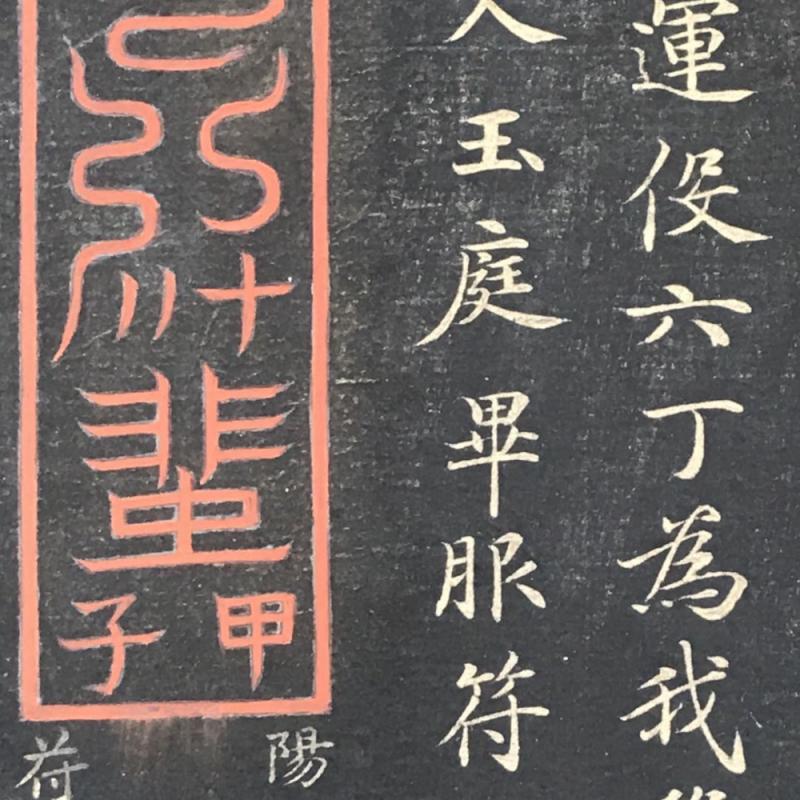 運役六丁為我
人玉庭畢服符
甲子
陽符